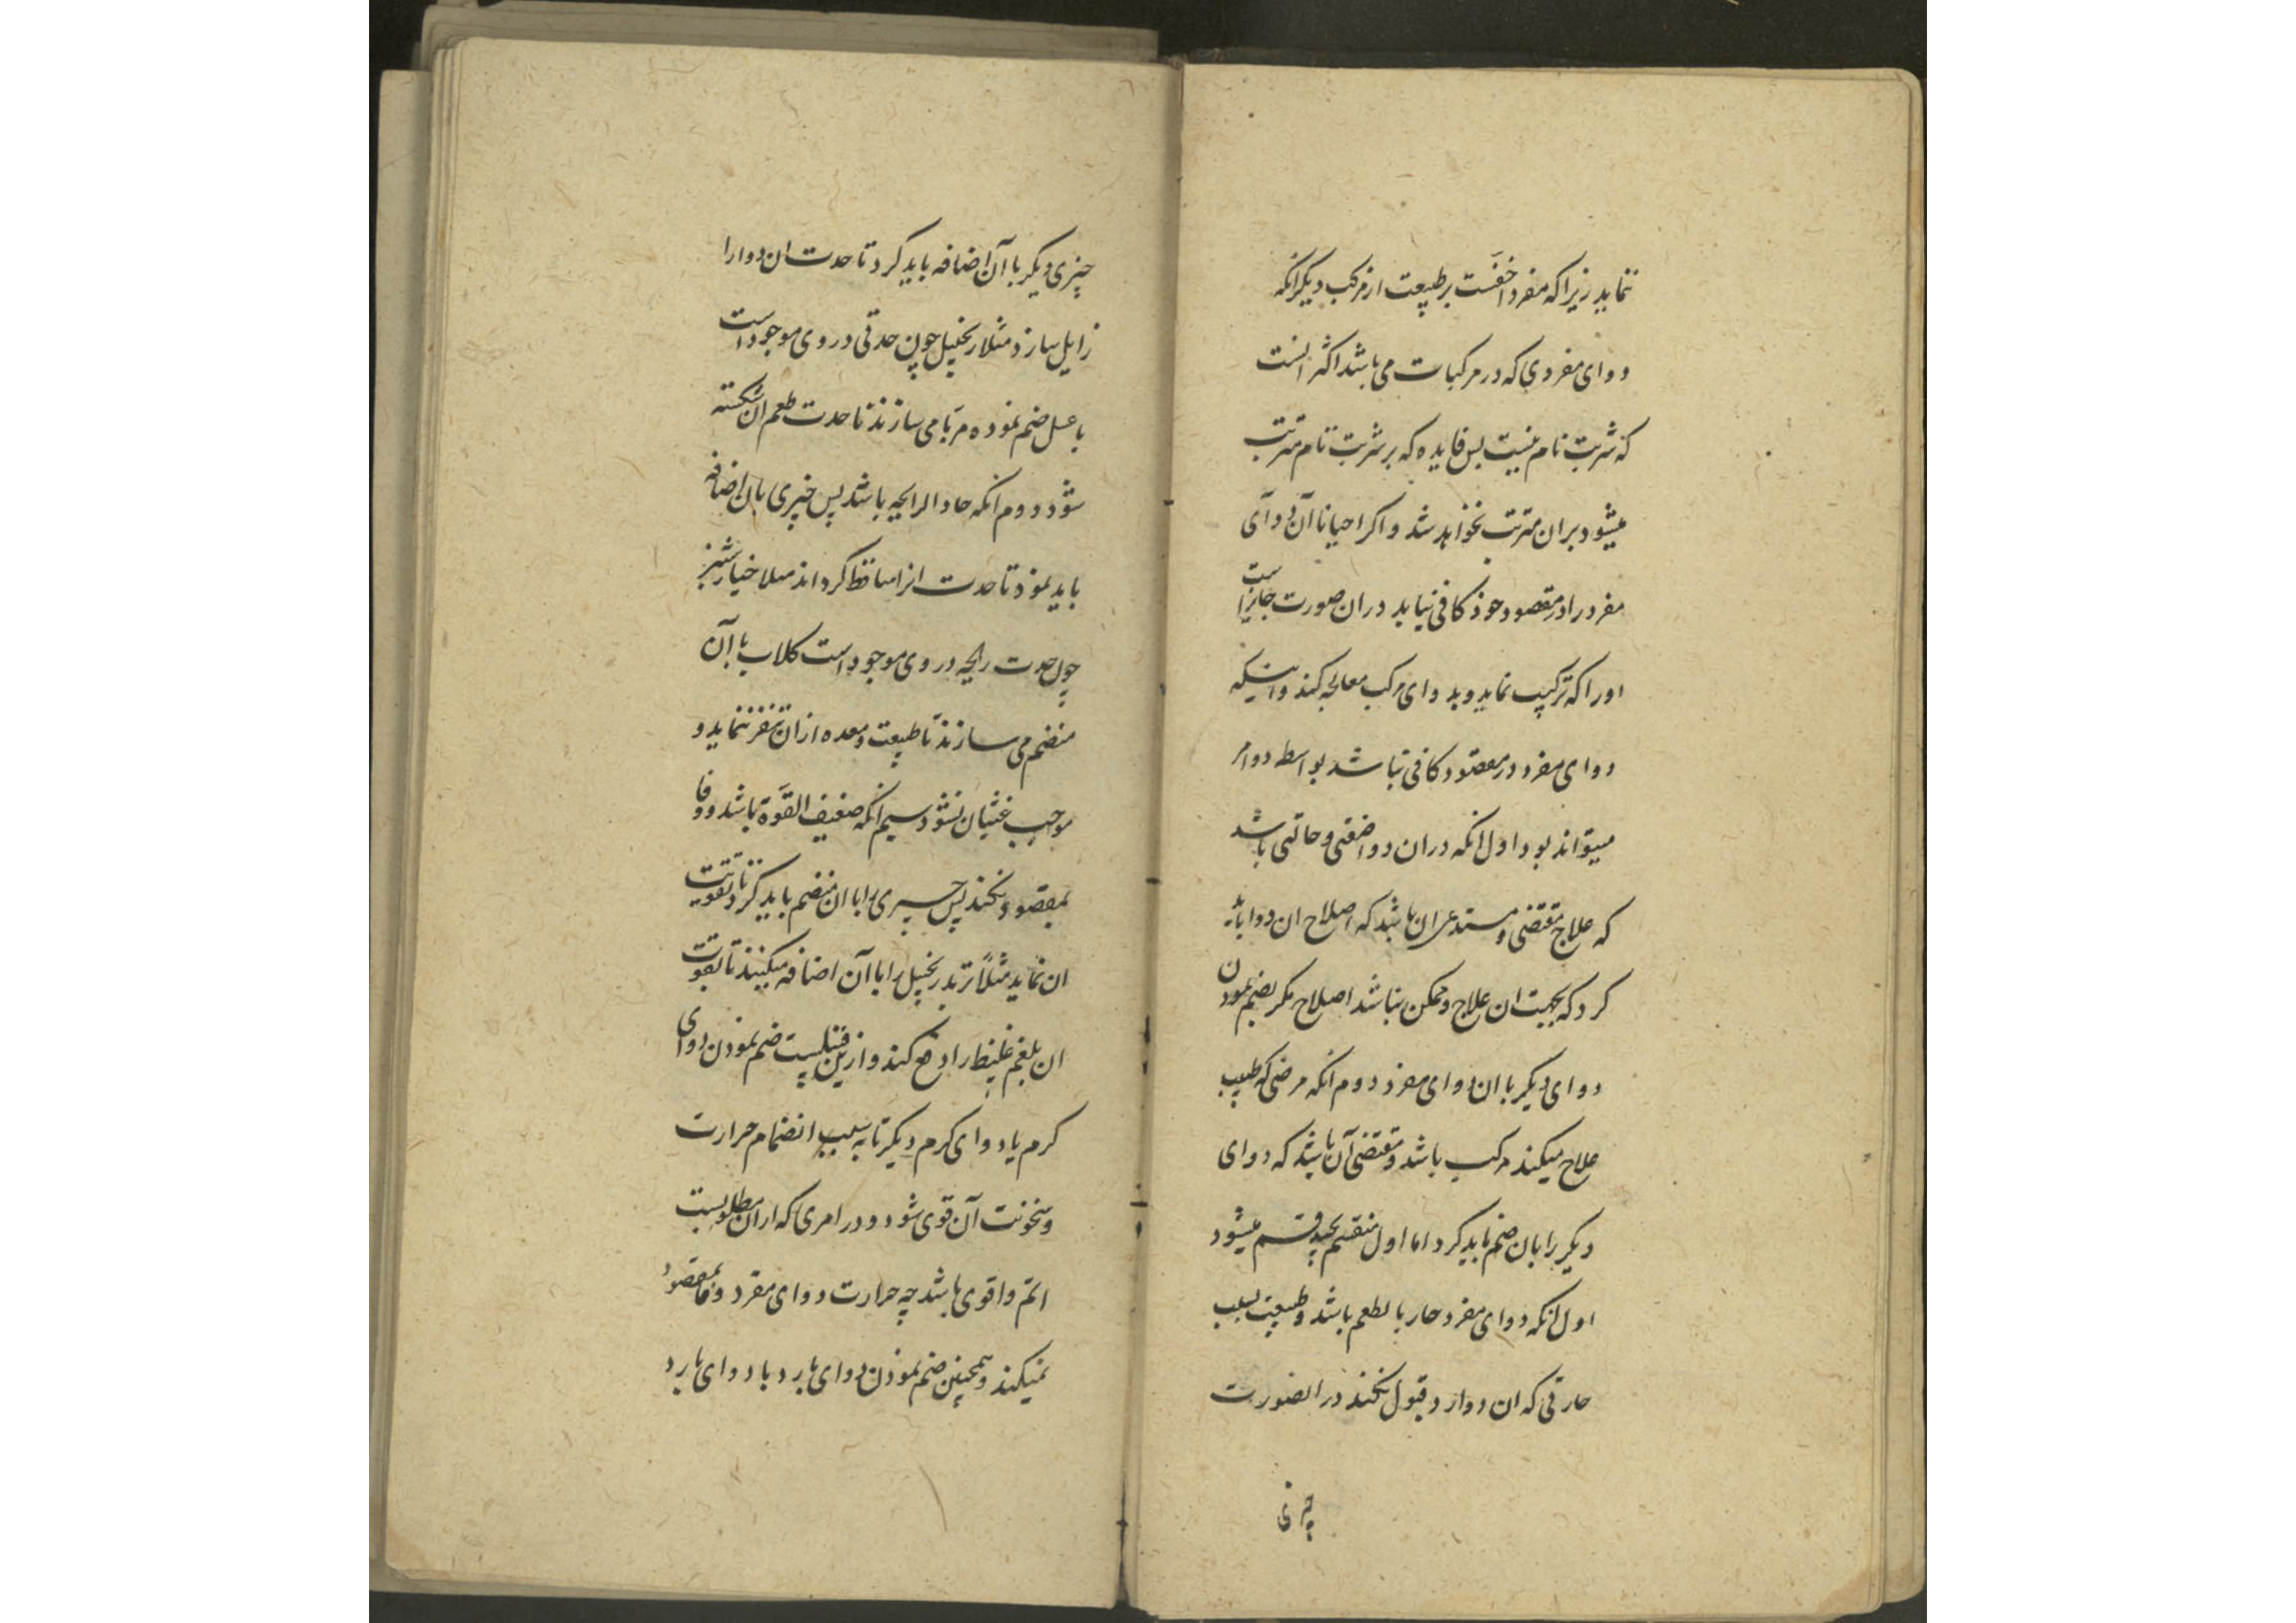 ننماید زیرا که مفرد اخفست بر طبیعت از مرکب دیگر انکه
دوای مفردی که در مرکبات می باشد اکثر انست
که شربت تام نیست پس فایده که بر شربت تام مترتب
میشود بران مترتب نخواهد شد و اکر احیانا آن دوآی
مفرد را در مقصود خوذ کافی نیابد دران صورت جایز است
او را که ترکیب نماید و بدوای مرکب معالجه کند و اینکه
دوای مفرد در مقصود کافی نباشد بواسطه دو امر
میتواند بود اول انکه دران دوا ضعفی و حالتی باشد
که علاج مقتضی و مستدعی ان باشد که اصلاح ان دوا باید
کرد که بجهت ان علاج و ممکن نباشد اصلاح مکر بضم نمودن
دوای دیکر با ان دوای مفرد دوم انکه مرضی که طبیب
علاج میکند مرکب باشد و مقتضی آن باشد که دوای
دیکر را بان ضم باید کرد اما اول منقسم بچند قسم میشود
اول انکه دوای مفرد حار با لطعم باشد و طبیعت بسبب
حارقی که ان دوارد قبول نکند در الصورت
چیزی
چیزی دیکر با آن اضافه باید کرد تا حدت ان دوا را
زایل سازد مثلا زنجبیل چون حدتی در وی موجود است
با عسل ضم نموده مربا می سازند تا حدت طعم ان شکسته
شوذ دوم انکه حاد الرایحه باشد پس چیزی بان اضافه
باید نموذ تا حدت انرا ساقط کرداند مثلا خیارشنبر
چون حدت رایحه در وی موجود است کلاب با آن
منضم می سازند تا طبیعت و معده از ان تنفر ننماید و
موجب غثیان نشود سیم انکه ضعیف القوة باشد و وفا
بمقصود نکند پس چیزی را با ان منضم باید کرد تا تقویت
ان نماید مثلاً تربد زنجبیل را با آن اضافه میکنند تا بقوت
ان بلغم غلیظ را دفع کند و ازین قبیلست ضم نمودن دوای
کرم با دوای کرم دیکر تا به سبب انضمام حرارت
و سخونت آن قوی شود و در امری که از ان مطلوبست
اتم و اقوی باشد چه حرارت دوای مفرد وفا بمقصود
نمیکند و همچنین ضم نموذن دوای بارد با دوای بارد